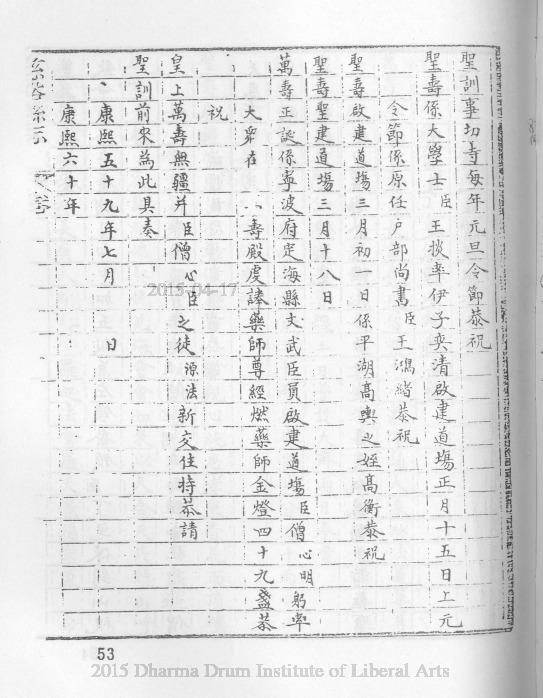 聖訓事切寺每年元旦令節恭祝
聖壽係大學士臣王掞率伊子奕清啟建道場正月十五日上元
令節係原任户部尚書臣王鴻緒恭祝
聖壽啟建道塲三月初一日係平湖高輿之姪高衡恭祝
聖壽聖建道塲三月十八日
萬壽正誕係寧波府定海縣文武臣員啟建道塲臣僧心明躬率
大衆在萬壽殿虔諱藥師尊經燃藥師金燈四十九盞恭
祝
皇上萬壽無疆并臣僧心臣之徒源法新交住持恭請
聖訓前來為此具奏
康熙五十九年七月 日
康熙六十年
53
2015-04-17
2015 Dharma Drum Institute of Liberal Arts